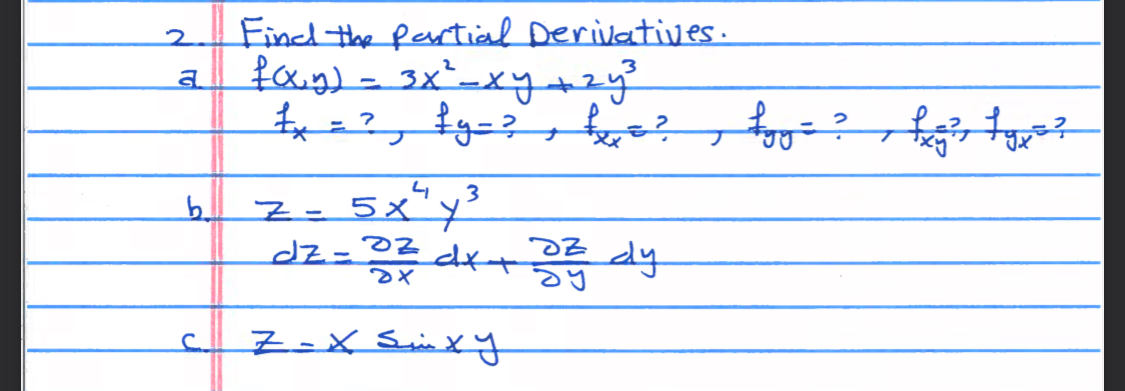 2. Find the Partial Derivatives.
a. f(x,y) = 3x² - xy + 2y³
fx = ?, fy = ?, fxx = ?, fyy = ?, fxy = ?, fyx = ?
b. z = 5x⁴y³
dz = ∂z/∂x dx + ∂z/∂y dy
c. z = x sin xy